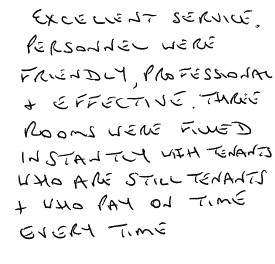 EXCELLENT SERVICE.
PERSONNEL WERE
FRIENDLY, PROFESSIONAL
+ EFFECTIVE. THREE
ROOMS WERE FILLED
INSTANTLY WITH TENANTS
WHO ARE STILL TENANTS
+ WHO PAY ON TIME
EVERY TIME